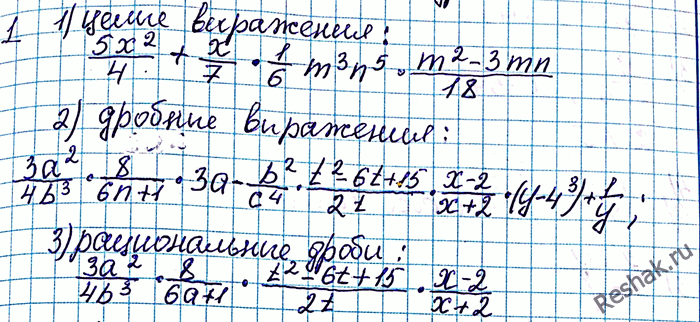 1 1) целые выражения:
5x²/4 + x/7 · 1/6 m³n⁵ · (m² - 3mn)/18
2) дробные выражения:
3a²/4b³ · 8/(6n+1) · 3a - b²/c⁴ · (t² - 6t + 15)/2t · (x-2)/(x+2) · (y-4³) + 1/y ;
3) рациональные дроби:
3a²/4b³ · 8/(6a+1) · (t² - 6t + 15)/2t · (x-2)/(x+2)
Reshak.ru